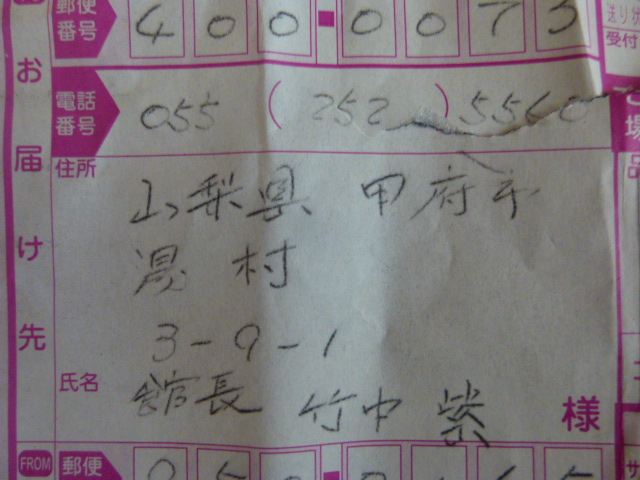 郵便番号 400-0073
お届け先
電話番号 055 (252) 5560
住所 山梨県 甲府市
湯村
3-9-1
氏名 館長 竹中 紫 様
FROM 郵便
受付